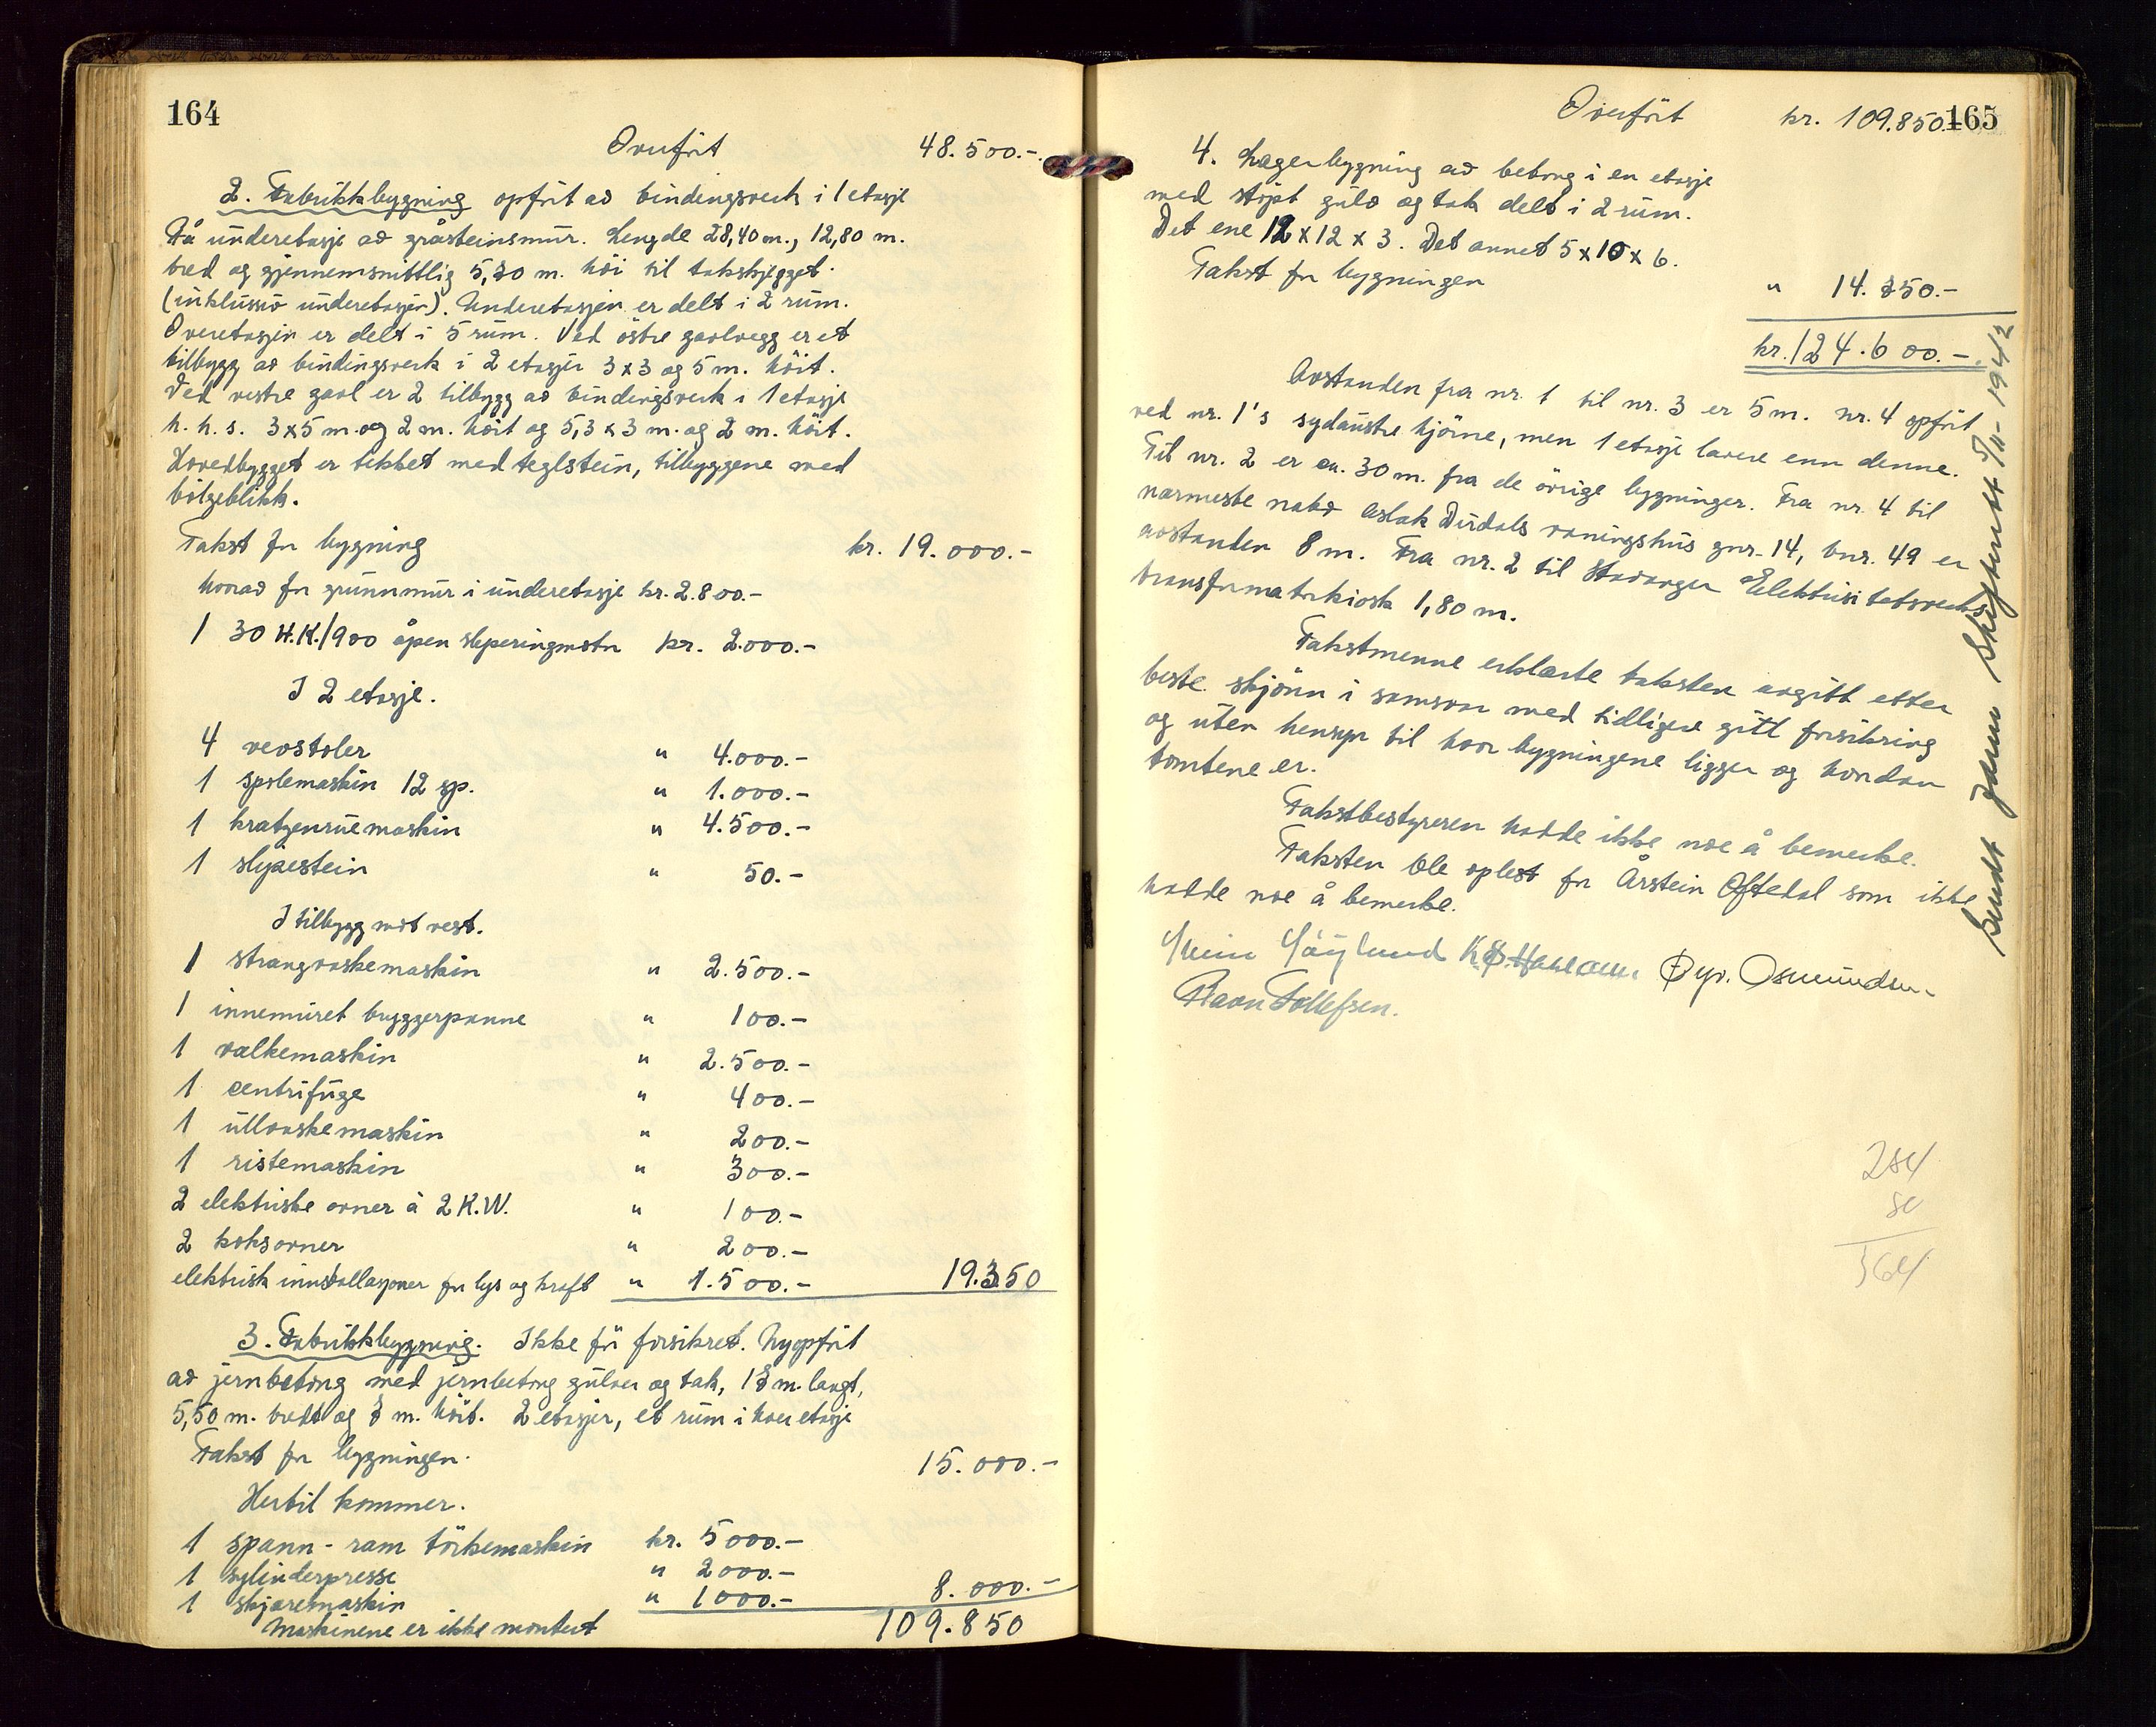 164
Overført 48.500.-
2. Fabrikkbygning opført av bindingsverk i 1 etasje
På underetasje av gråsteinsmur. Lengde 28,40 m., 12,80 m.
bred og gjennemsnittlig 5,30 m. höi til takskjegget.
(inklussiv underetasjen). Underetasjen er delt i 2 rum.
Overetasjen er delt i 5 rum. Ved östre gavlvegg er et
tilbygg av bindingsverk i 2 etasjer 3x3 og 5 m. höit.
Ved vestre gavl er 2 tilbygg av bindingsverk i 1 etasje
h.h.s. 3x5 m. og 2 m. höit og 5,3 x 3 m. og 2 m. höit.
Hovedbygget er tekket med teglstein, tilbyggene med
bölgeblikk.
Takst for bygning kr. 19.000.-
hvorav for grunnmur i underetasje kr. 2.800.-
1 30 H.K./900 åpen sleperingmotor kr. 2.000.-
I 2 etasje.
4 vevstoler " 4.000.-
1 spolemaskin 12 sp. " 1.000.-
1 kratzenruemaskin " 4.500.-
1 slipestein " 50.-
I tilbygg mot vest.
1 strangvaskemaskin " 2.500.-
1 innemuret bryggerpanne " 100.-
1 valkemaskin " 2.500.-
1 centrifuge " 400.-
1 ullvaskemaskin " 200.-
1 ristemaskin " 300.-
2 elektriske ovner à 2 K.W. " 100.-
2 koksovner " 200.-
elektrisk innstallasjoner for lys og kraft " 1.500.- 19.350
3. Fabrikkbygning. Ikke för forsikret. Nyopfört
av jernbetong med jernbetong gulver og tak, 18 m. langt,
5,50 m. bredt og 8 m. höit. 2 etasjer, et rum i hver etasje
Takst for bygningen. 15.000.-
Hertil kommer.
1 spann-ram törkemaskin kr. 5000.-
1 sylinderpresse " 2000.-
1 skjæremaskin " 1000.- 8.000.-
Maskinene er ikke montert 109.850
165
Overfört kr. 109.850.-
4. Lagerbygning av betong i en etasje
med stöpt gulv og tak delt i 2 rum.
Det ene 12 x 12 x 3. Det annet 5 x 10 x 6.
Takst for bygningen " 14.750.-
kr. 124.600.-
Avstanden fra nr. 1 til nr. 3 er 5 m. nr. 4 opfört
ved nr. 1's sydaustre hjörne, men 1 etasje lavere enn denne.
Til nr. 2 er ca. 30 m. fra de övrige bygninger. Fra nr. 4 til
nærmeste nabo Aslak Dirdals våningshus gnr. 14, bnr. 49 er
avstanden 8 m. Fra nr. 2 til Stavanger Elektrisitetsverks
transformatorkiosk 1,80 m.
Takstmenne erklærte taksten avgitt etter
beste skjönn i samsvar med tidligere gitt forsikring
og uten hensyn til hvor bygningene ligger og hvordan
tomtene er.
Takstbestyreren hadde ikke noe å bemerke.
Taksten ble oplest for Årstein Oftedal som ikke
hadde noe å bemerke.
Øyv. Osmundsen
Ravn Tollefsen.
Sendt 1942
284
564